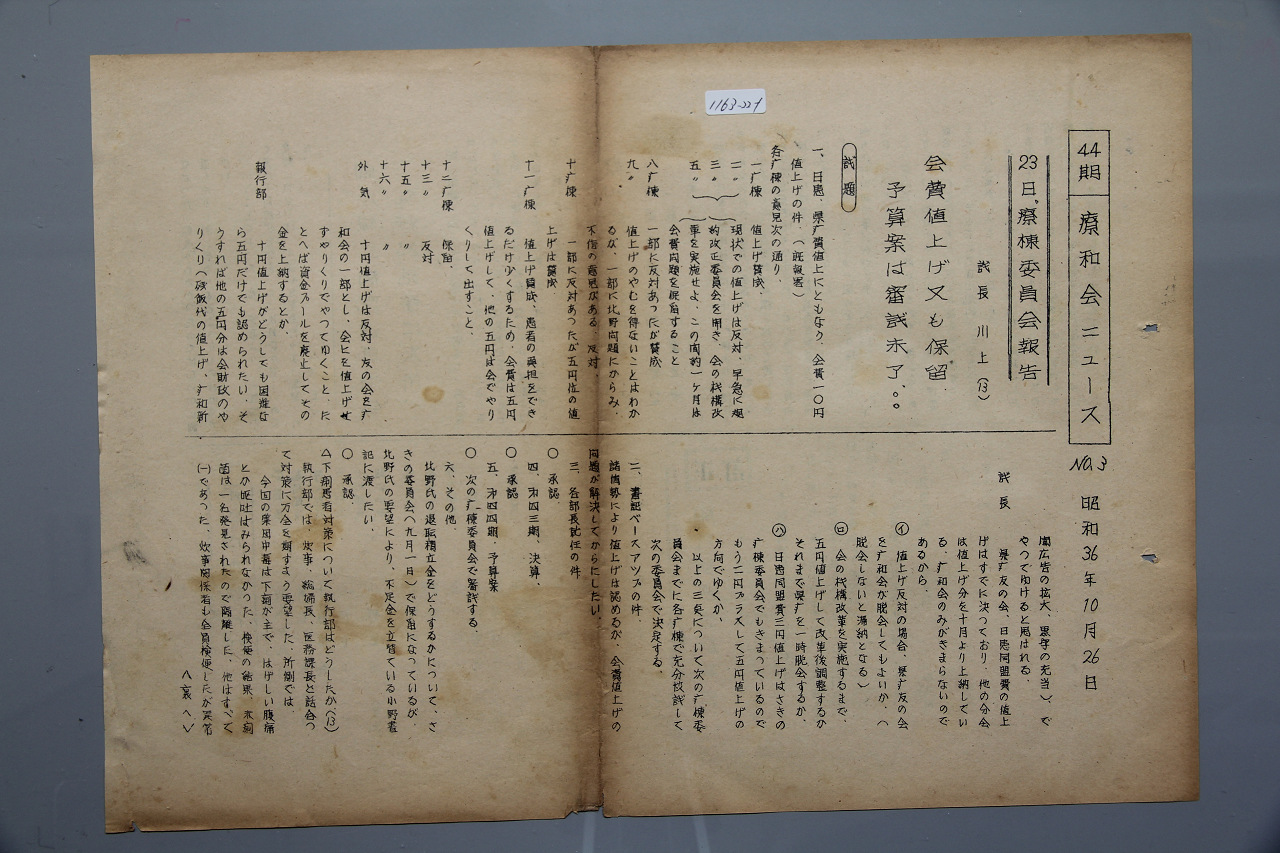 1163-221
44期
療和会ニュース
NO.3
昭和36年10月26日
23日、療棟委員会報告
議長 川上(13)
会費値上げ又も保留
予算案は審議未了。。。
議題
一、日患、県疒費値上にともなう、会費一〇円
値上げの件、(既報書)
各疒棟の意見次の通り、
一疒棟 値上げ賛成、
二〃 現状での値上げは反対、早急に規
三〃 約改正委員会を開き、会の機構改
五〃 革を実施せよ、この間約一ヶ月は
会費問題を保留すること
八疒棟 一部に反対あったが賛成
九〃 値上げのやむを得ないことはわか
るが、一部に北野問題にからみ、
不信の意見がある、反対、
十疒棟 一部に反対あったが五円位の値
上げは賛成
十一疒棟 値上げ賛成、患者の負担をでき
るだけ少くするため、会費は五円
値上げして、他の五円は会でやり
くりして出すこと、
十二疒棟 保留、
十三〃 反対
十五〃 〃
十六〃 〃
外気 十円値上げは反対、友の会を疒
和会の一部とし、会ヒを値上げせ
ずやりくりでやってゆくこと、た
とへば資金プールを廃止してその
金を上納するとか、
執行部 十円値上げがどうしても困難な
ら五円だけでも認められたい、そ
うすれば他の五円分は会財政のや
りくり(残飯代の値上げ、疒和新
聞広告の拡大、黒字の充当)、で
やってゆけると思はれる、
議長 県疒友の会、日患同盟費の値上
げはすでに決っており、他の分会
は値上げ分を十月より上納してい
る、疒和会のみがきまらないので
あるから、
㋑ 値上げ反対の場合、県疒友の会
を疒和会が脱会してもよいか、(
脱会しないと滞納となる)
㋺ 会の機構改革を実施するまで、
五円値上げして改革後調整するか
それまで県疒を一時脱会するか、
㋩ 日患同盟費三円値上げはさきの
疒棟委員会でもきまっているので
もう二円プラスして五円値上げの
方向でゆくか、
以上の三点について次の疒棟委
員会までに各疒棟で充分討議して
次の委員会で決定する、
二、書記ベースアップの件、
諸情勢により値上げは認めるが、会費値上げの
問題が解決してからにしたい、
三、各部長就任の件
〇 承認、
四、第四三期、決算、
〇 承認
五、第四四期、予算案
〇 次の疒棟委員会で審議する、
六、その他、
北野氏の退転積立金をどうするかについて、さ
きの委員会(九月一一日)で保留になっているが、
北野氏の要望により、不足金を立替ている小野君
記に渡したい、
〇 承認、
△下痢患者対策について執行部はどうしたか(13)
執行部では、炊事、総婦長、医務課長と話合っ
て対策に万全を期すよう要望した、所側では
今回の集団中毒は下痢が主で、はげしい腹痛
とか嘔吐はみられなかった、検便の結果、赤痢
菌は一名発見されたので隔離した、他はすべて
(一)であった、炊事関係者も全員検便したが異常
<裏へ>